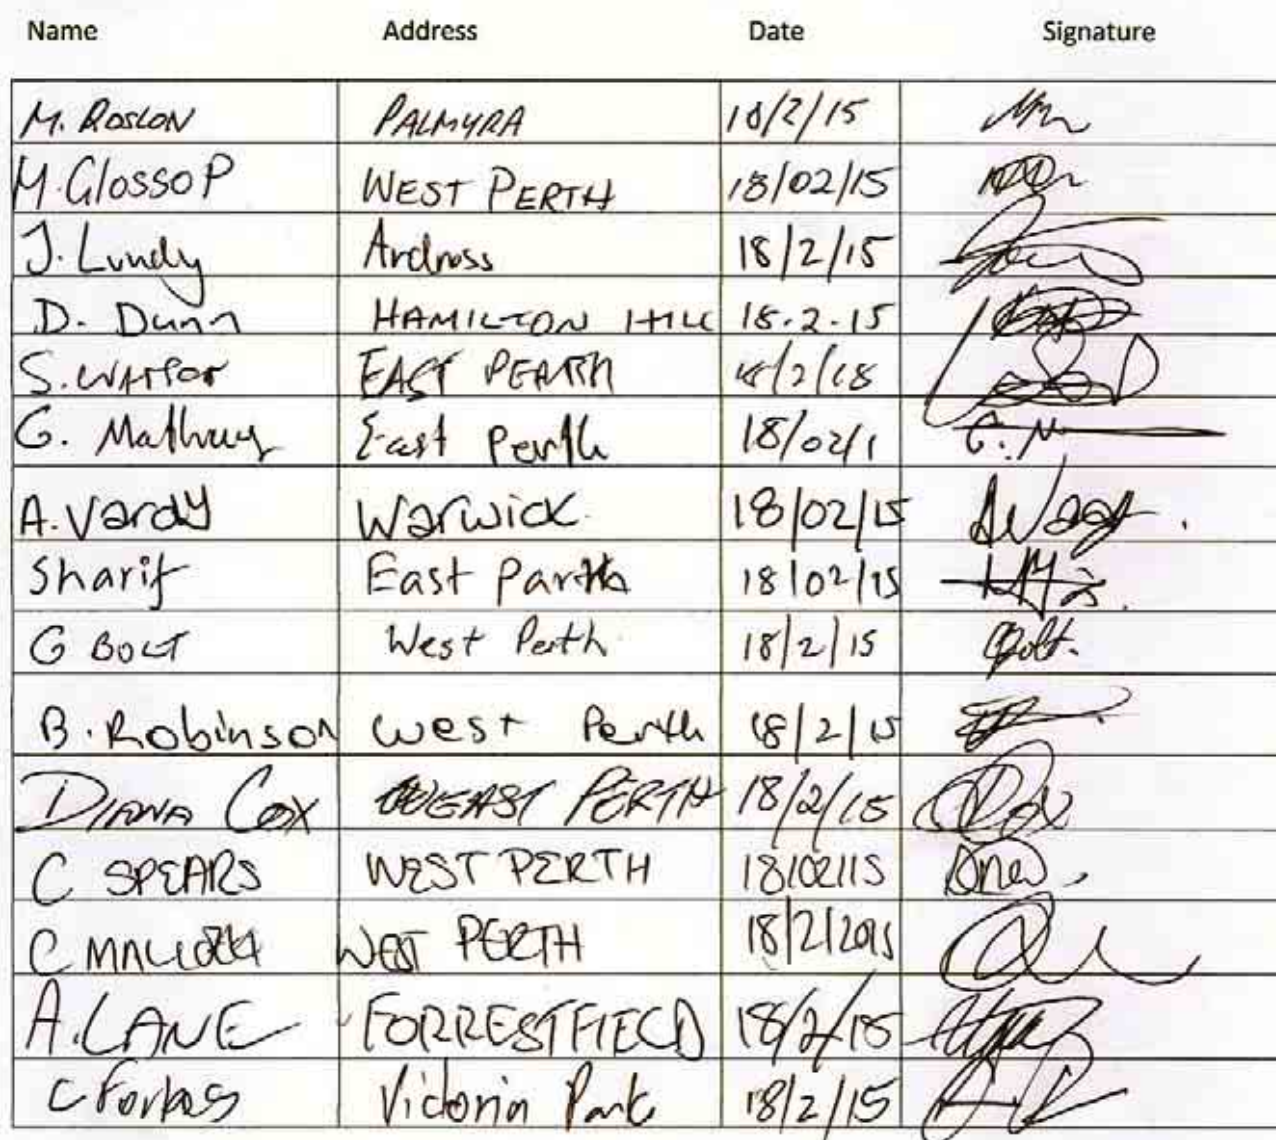 Name Address Date Signature
M. ROSLON PALMYRA 18/2/15
M. Glossop WEST PERTH 18/02/15
J. Lundy Ardross 18/2/15
D. Dunn HAMILTON HILL 18.2.15
S. EAST PERTH
G. East Perth 18/02/1 G. M
A. Vardy Warwick 18/02/15
Sharif East Parth 18/02/15
G BOLT West Perth 18/2/15 Bolt.
B. Robinson west Perth 18/2/15
DIANA Cox EAST PERTH 18/2/15
C SPEARS WEST PERTH 18/02/15
C WEST PERTH 18/2/2015
A. LANE FORRESTFIELD 18/2/15
C Forbes Victoria Park 18/2/15